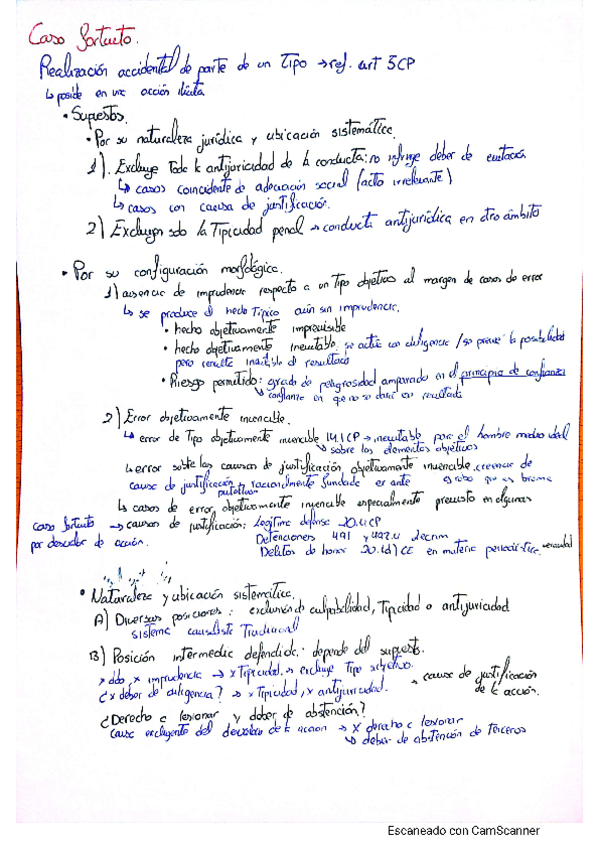 Caso fortuito.
Realización accidental de parte de un Tipo → ref. art 5CP
↳ posible en una acción ilícita
• Supuestos.
• Por su naturaleza jurídica y ubicación sistemática.
1). Excluye Toda la antijuricidad de la conducta: no infringe deber de evitación
↳ casos coincidente de adecuación social (acto irrelevante)
↳ casos con causa de justificación.
2) Excluyen solo la Tipicidad penal → conducta antijurídica en otro ámbito
• Por su configuración morfológica.
1) ausencia de imprudencia respecto a un Tipo objetivo al margen de casos de error
↳ se produce el hecho Típico aún sin imprudencia.
• hecho objetivamente imprevisible
• hecho objetivamente inevitable. se actúa con diligencia / se prevé la posibilidad
pero resulta inevitable el resultado
• Riesgo permitido: grado de peligrosidad amparado en el principio de confianza
↳ confianza en que no se dará un resultado
2) Error objetivamente invencible.
↳ error de Tipo objetivamente invencible 14.1CP → inevitable para el hombre medio ideal
↳ sobre los elementos objetivos
↳ error sobre las causas de justificación objetivamente invencible. creencia de
causa de justificación racionalmente fundada ex ante
putativa
robo que es broma
↳ casos de error objetivamente invencible especialmente previsto en algunas
caso fortuito → causas de justificación: Legítima defensa 20.4CP
por desvalor de acción.
Detenciones 491 y 492.4 Lecrim
Delitos de honor 20.1d) CE en materia periodística. veracidad
• Naturaleza y ubicación sistemática.
A) Diversas posiciones: exclusión de culpabilidad, Tipicidad o antijuricidad
sistema causalista Tradicional
B) Posición intermedia defendida: depende del supuesto.
x dolo, x imprudencia → x Tipicidad. → excluye Tipo subjetivo.
¿x deber de diligencia? → x Tipicidad, x antijuricidad.
→ causa de justificación
de la acción.
¿Derecho a lesionar y deber de abstención?
causa excluyente del desvalor de la acción → x derecho a lesionar
↳ deber de abstención de terceros
Escaneado con CamScanner